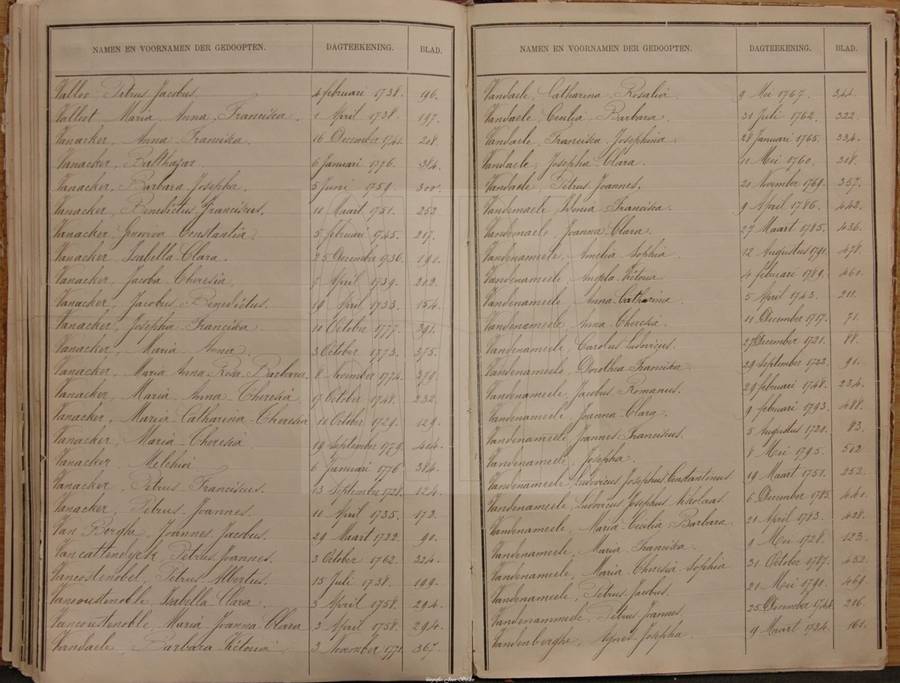 NAMEN EN VOORNAMEN DER GEDOOPTEN. DAGTEEKENING. BLAD.
Petrus Jacobus 4 februari 1738. 196.
Maria Anna Francisca. 1 April 1738. 197.
Vanacker, Anna Franciska. 16 December 1741. 208.
Vanacker, Balthazar 6 Januari 1776. 384.
Vanacker, Barbara Josepha. 5 Juni 1759. 300.
Vanacker, Benedictus Franciscus. 11 Maart 1751. 252
Vanacker, Constantia 5 februari 1745. 217.
Vanacker Isabella Clara. 25 December 1736. 190.
Vanacker, Jacoba Theresia 7 April 1739. 202.
Vanacker, Jacobus Benedictus. 19 April 1733. 154.
Vanacker, Josepha Franciska 11 October 1777. 391.
Vanacker, Maria Anna. 3 October 1773. 375.
Vanacker, Maria Anna Rosa Barbara. 8 November 1774. 379.
Vanacker, Maria Anna Theresia 17 October 1748. 232.
Vanacker, Maria Catharina Theresia 11 October 1729. 129.
Vanacker, Maria Theresia 19 September 1779. 404.
Vanacker Melchior. 6 Januari 1776. 384.
Vanacker, Petrus Franciscus. 13 September 1728. 124.
Vanacker, Petrus Joannes. 10 April 1735. 172.
Van Borghe, Joannes Jacobus. 29 Maart 1722. 90.
Vancattendyck, Petrus Joannes. 3 October 1762. 324.
Vancostenobel, Petrus Albertus. 15 Juli 1738. 199.
Isabella Clara. 3 April 1758. 294.
Maria Joanna Clara 3 April 1758. 294.
Vandaele, Barbara Victoria 3 November 1771. 367.
NAMEN EN VOORNAMEN DER GEDOOPTEN. DAGTEEKENING. BLAD.
Vandaele, Catharina Rosalia 9 Mei 1767. 344.
Vandaele, Cecilia Barbara. 31 Juli 1762. 322.
Vandaele, Franciska Josephina 28 Januari 1765. 334.
Vandaele, Josepha Clara. 11 Mei 1760. 308.
Vandaele, Petrus Joannes. 20 November 1769. 357.
Franciska. 9 April 1786. 442.
Joanna Clara. 27 Maart 1785. 436.
Vandenameele, Amelia Sophia 12 Augustus 1791. 478.
Vandenameele, Angela Victoria 4 februari 1789. 460.
Vandenameele Anna Catharina. 5 April 1743. 211.
Vandenameele, Anna Theresia. 11 December 1717. 71.
Vandenameele, Carolus Ludovicus. December 1721. 88.
Vandenameele, Dorothea Franciska 29 September 1722. 91.
Vandenameele, Jacobus Romanus. 29 februari 1748. 234.
Vandenameele, Joanna Clara. 9 februari 1793. 488.
Vandenameele, Joannes Franciscus. 5 Augustus 1720. 83.
Vandenameele, Josepha. 8 Mei 1795. 502.
Vandenameele, Ludovicus Josephus Constantinus 19 Maart 1751. 252.
Vandenameele, Ludovicus Josephus Nicolaas. 6 December 1785. 440.
Vandenameele, Maria Cecilia Barbara. 21 April 1783. 428.
Vandenameele, Maria Franciska. 9 Mei 1728. 123.
Vandenameele, Maria Theresia Sophia 31 October 1787. 452.
Vandenameele, Petrus Jacobus. 21 Mei 1791. 464.
Vandenammeele, Petrus Joannes. 25 December 216.
Vandenberghe, Agnes Josepha. 9 Maart 1734. 161.